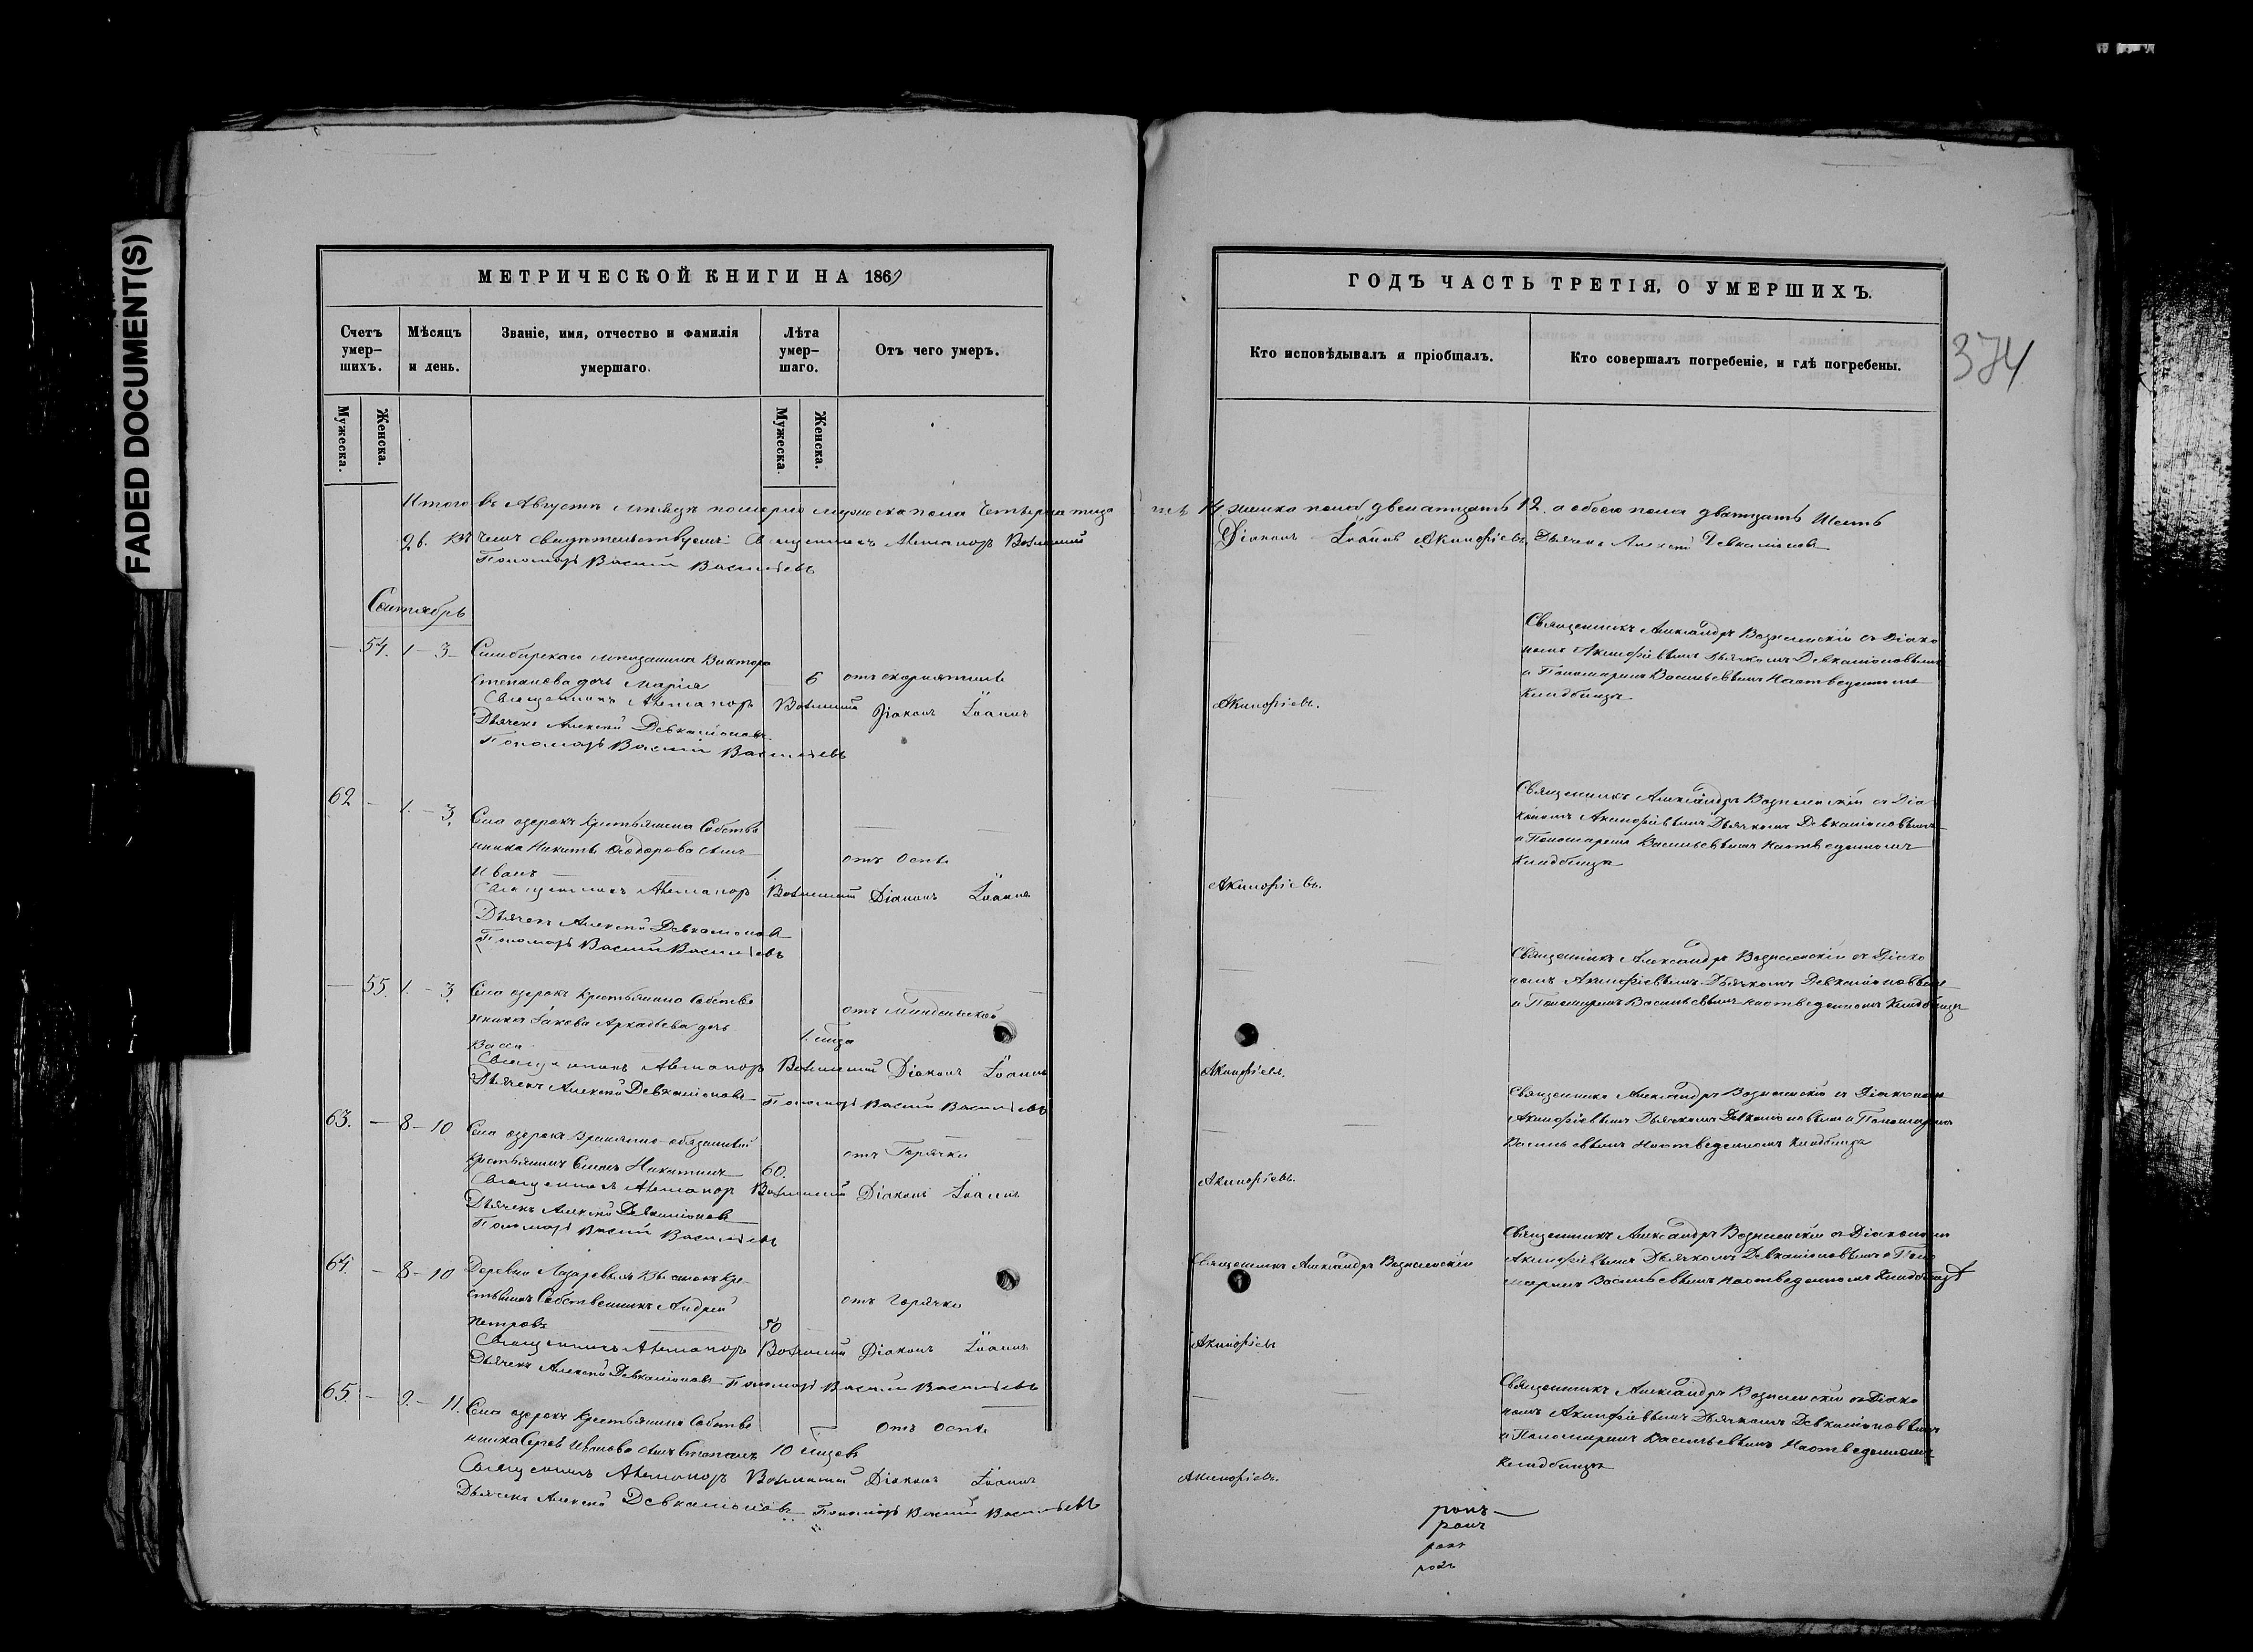 FADED DOCUMENT(S)
МЕТРИЧЕСКОЙ КНИГИ НА 1869
Счетъ умер-шихъ.
Мѣсяцъ и день.
Званіе, имя, отчество и фамилія умершаго.
Лѣта умер-шаго.
Отъ чего умеръ.
Мужеска.
Женска.
Мужеска.
Женска.
Итого въ Августѣ мѣсяцѣ померло мужеска пола четырнатца
26. Въ чемъ свидѣтельствуемъ Священникъ Александръ Вознесенскій
Пономарь Василій Васильевъ
Сентябрь
— 54. 1 — 3 — Симбирскаго мещанина Виктора
Степанова дочь Марія 6 отъ
Священникъ Александръ Вознесенскій Діаконъ Іоаннъ
Дьячекъ Алексѣй Девкаліоновъ
Пономарь Василій Васильевъ
62 — 1. — 3. Села озерокъ Крестьянина Собстве
нника Никиты Ѳеодорова сынъ отъ оспы
Иванъ 1.
Священникъ Александръ Вознесенскій Діаконъ Іоаннъ
Дьячекъ Алексѣй Девкаліоновъ
Пономарь Василій Васильевъ
— 55. 1. — 3. Села озерокъ Крестьянина Собстве
нника Іакова Аркадьева дочь отъ младенческой
Васса 1. года
Священникъ Александръ Вознесенскій Діаконъ Іоаннъ
Дьячекъ Алексѣй Девкаліоновъ Пономарь Василій Васильевъ
63. — 8 — 10 Села озерокъ Временно-обязанный
крестьянинъ Никитинъ 60. отъ Горячки
Священникъ Александръ Вознесенскій Діаконъ Іоаннъ
Дьячекъ Алексѣй Девкаліоновъ
Пономарь Василій Васильевъ
64. — 8 — 10 Деревни Кре
стьянинъ Собственникъ Андрей отъ горячки
Петровъ 50
Священникъ Александръ Вознесенскій Діаконъ Іоаннъ
Дьячекъ Алексѣй Девкаліоновъ Пономарь Василій Васильевъ
65. — 9. — 11. Села озерокъ Крестьянина Собстве
нника Иванова сынъ Степанъ 10 отъ оспы
Священникъ Александръ Вознесенскій Діаконъ Іоаннъ
Дьячекъ Алексѣй Девкаліоновъ Пономарь Василій Васильевъ
ГОДЪ ЧАСТЬ ТРЕТІЯ, О УМЕРШИХЪ.
374
Кто исповѣдывалъ и пріобщалъ.
Кто совершалъ погребеніе, и гдѣ погребены.
ть 14 женска пола двенатцать 12. а обоего пола дватцать шесть
Діаконъ Іоаннъ Акинфіевъ Дьячекъ Алексѣй Девкаліоновъ
Священникъ Александръ Вознесенскій съ Діако
номъ Акинфіевымъ Дьячкомъ Девкаліоновымъ
и Пономаремъ Васильевымъ На отведенномъ
кладбищѣ
Акинфіевъ.
Священникъ Александръ Вознесенскій съ Діа
кономъ Акинфіевымъ Дьячкомъ Девкаліоновымъ
и Пономаремъ Васильевымъ На отведенномъ
кладбищѣ
Акинфіевъ.
Священникъ Александръ Вознесенскій съ Діако
номъ Акинфіевымъ Дьячкомъ Девкаліоновымъ
и Пономаремъ Васильевымъ на отведенномъ Кладбищѣ
Акинфіевъ.
Священникъ Александръ Вознесенскій съ Діакономъ
Акинфіевымъ Дьячкомъ Девкаліоновымъ и Пономаремъ
Васильевымъ На отведенномъ кладбищѣ
Акинфіевъ.
Священникъ Александръ Вознесенскій
Священникъ Александръ Вознесенскій съ Діакономъ
Акинфіевымъ Дьячкомъ Девкаліоновымъ и Поно
маремъ Васильевымъ На отведенномъ Кладбищѣ
Акинфіевъ
Священникъ Александръ Вознесенскій съ Діако
номъ Акинфіевымъ Дьячкомъ Девкаліоновымъ
и Пономаремъ Васильевымъ На отведенномъ
Кладбищѣ
Акинфіевъ.